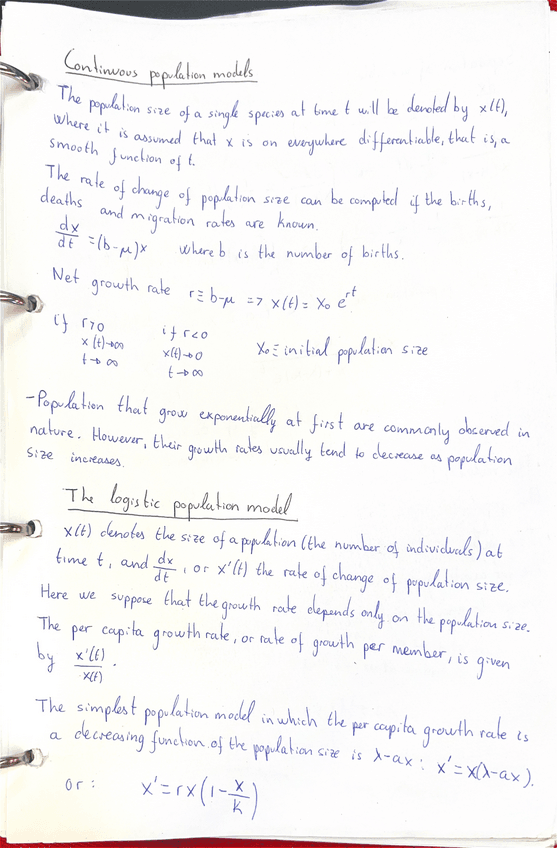 Continuous population models
The population size of a single species at time t will be denoted by x(t),
where it is assumed that x is on everywhere differentiable, that is, a
smooth function of t.
The rate of change of population size can be computed if the births,
deaths and migration rates are known.
dx/dt = (b-μ)x where b is the number of births.
Net growth rate r ≡ b-μ => x(t) = x₀ e^rt
if r>0 if r<0
x(t)→∞ x(t)→0 x₀ ≡ initial population size
t→∞ t→∞
-Population that grow exponentially at first are commonly observed in
nature. However, their growth rates usually tend to decrease as population
size increases.
The logistic population model
x(t) denotes the size of a population (the number of individuals) at
time t, and dx/dt, or x'(t) the rate of change of population size.
Here we suppose that the growth rate depends only on the population size.
The per capita growth rate, or rate of growth per member, is given
by x'(t)/x(t).
The simplest population model in which the per capita growth rate is
a decreasing function of the population size is λ-ax: x' = x(λ-ax).
or: x' = rx(1-x/k)